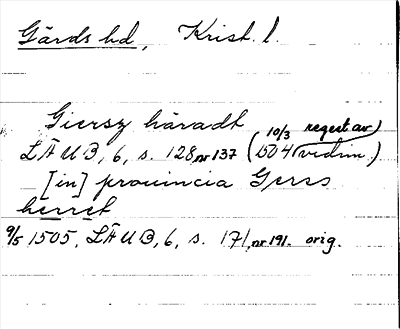 Gärds hd, Krist. l.
Giersz häradt
10/3 regest av)
LÄUB, 6, s. 128, nr 137 (1504 vidim.)
[in] prouincia Gerss
herret
9/5 1505, LÄUB, 6, s. 171, nr 191. orig.